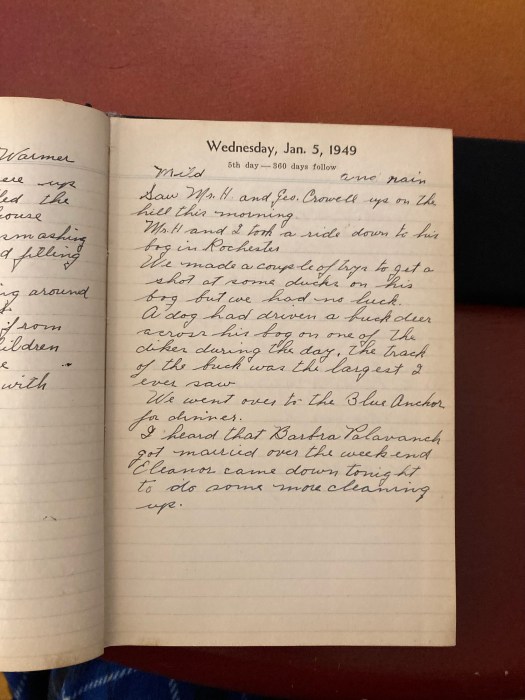 Warmer
up
the
house
smashing
filling
around
from
children
with
Wednesday, Jan. 5, 1949
5th day — 360 days follow
Mild and rain
Saw Mr. H. and Geo. Crowell up on the
hill this morning.
Mr. H and I took a ride down to his
bog in Rochester
We made a couple of trys to get a
shot at some ducks on his
bog but we had no luck.
A dog had driven a buck deer
across his bog on one of the
dikes during the day, The track
of the buck was the largest I
ever saw
We went over to the Blue Anchor
for dinner.
I heard that Barbra Palavanch
got married over the week end
Eleanor came down tonight
to do some more cleaning
up.